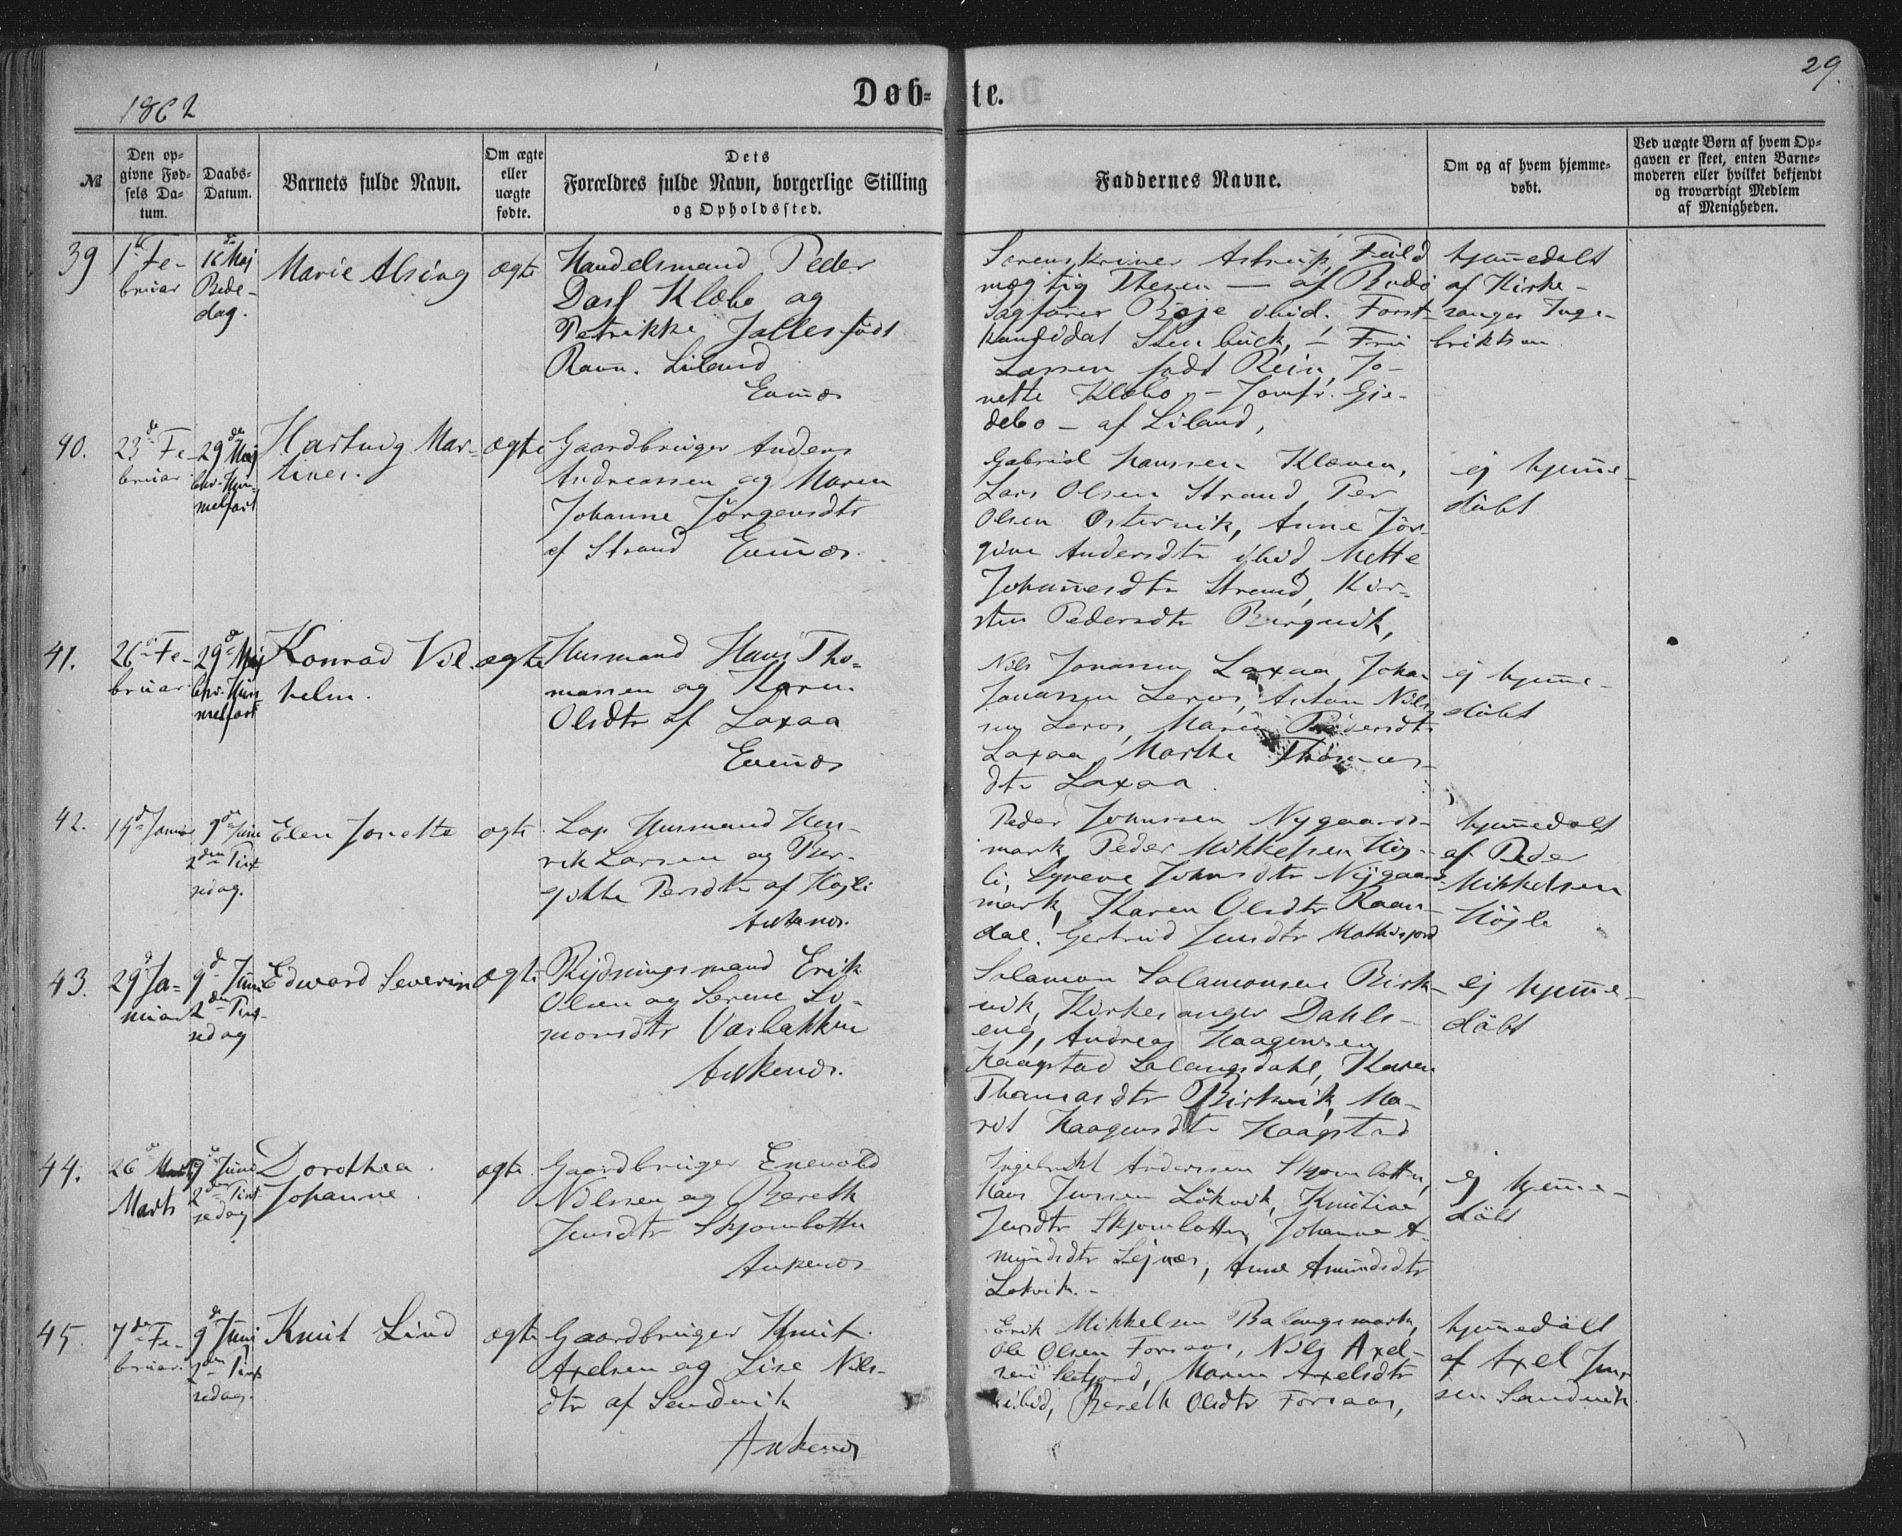 1862
Døb-te.
29.
№
Den op-
givne Fød-
sels Da-
tum.
Daabs-
Datum.
Barnets fulde Navn.
Om ægte
eller
uægte
fødte.
Dets
Forældres fulde Navn, borgerlige Stilling
og Opholdssted.
Faddernes Navne.
Om og af hvem hjemme-
døbt.
Ved uægte Børn af hvem Op-
gaven er skeet, enten Barne-
moderen eller hvilket bekjendt
og troværdigt Medlem
af Menigheden.
39
1 Fe-
bruar
16 Maj
Bede-
dag.
Marie Alsing
ægte
Handelsmand Peder
Dass Klæbo og
Petrikke Jalles født
Ravn. Liland
Evenæs
Sorenskriver Astrup, Fuld
mægtig Thesen — af Bodø
Sagfører Bøje ibid. Forst-
kandidat Stenbuck, — Fru
Lassen født Rein, Jo-
nette Klæbo, — Jomfr. Gie-
debo — af Liland,
hjemmedøbt
af Kirke-
sanger Inge-
briktsen
40.
23de Fe-
bruar
29de Maj
Chr. Him-
melfart
Hartvig Mar-
tines.
ægte
Gaardbruger Anders
Andreassen og Maren
Johanne Jørgensdtr
af Strand Evenæs.
Gabriel Hanssen Kleven,
Lars Olsen Strand, Per
Olsen Østervik, Anne Jør-
gine Andersdtr ibid, Mette
Johannesdtr Strand, Kir-
sten Pedersdtr Bergvik,
ej hjemme-
døbt
41.
26 Fe-
bruar
29 Maj
Chr. Him
melfart
Konrad Vil-
helm.
ægte
Husmand Hans Tho-
massen og Karen
Olsdtr af Laxaa
Evenæs
Nils Jonassen Laxaa, Johan
Jonassen Leros, Anton Nils
sen Leros, Maren Pedersdtr
Laxaa, Marthe Thomas-
dtr Laxaa.
ej hjemme-
døbt
42.
14 Januar
9 Juni
2den Pint
sedag.
Elen Jonette
ægte
Lap Husmand Hen-
rik Larsen og Bir-
gitte Persdtr af Højli
Ankenæs.
Peder Johnsen Nygaards-
mark, Peder Mikkelsen Høj-
li, Synene Johnsdtr Nygaards
mark, Karen Olsdtr Raan-
dal. Gertrud Jensdtr Mathisjord
hjemmedøbt
af Peder
Mikkelsen
Højli
43.
29 Ja-
nuar
9 Juni
2den Pint
sedag
Edward Severin
ægte
Rydningsmand Erik
Olsen og Serene Si-
monsdtr Vasbakken
Ankenæs.
Salamon Salamonsen Birk-
vik, Kirkesanger Dahls-
eng, Andreas Haagensen
Haagstad Salangsdahl, Karen
Thomasdtr Birkvik, Ma-
rit Haagensdtr Haagstad
ej hjemme-
døbt
44.
26
Marts
9 Juni
2den Pint
sedag
Dorothea
Johanne.
ægte
Gaardbruger Enevold
Nilssen og Bereth
Jensdtr Skjombotten
Ankenæs
Ingebrikt Anderssen Skjombotten,
Hans Jenssen Løkvik, Knutine
Jensdtr Skjombotten, Johanne A-
mundsdtr Lejnes, Anne Amundsdtr
Løkvik.-
ej hjemme-
døbt
45.
7de Fe-
bruar
9de Juni
2den Pint
sedag.
Knut Lind
ægte
Gaardbruger Knut
Axelsen og Lise Nils-
dtr af Sandvik
Ankenæs
Erik Mikkelsen Balangsmark,
Ole Olsen Forsaas, Nils Axel-
sen Sletjord, Maren Axelsdtr
ibid, Bereth Olsdtr Forsaas,
hjemmedøbt
af Axel Jen-
sen Sandvik